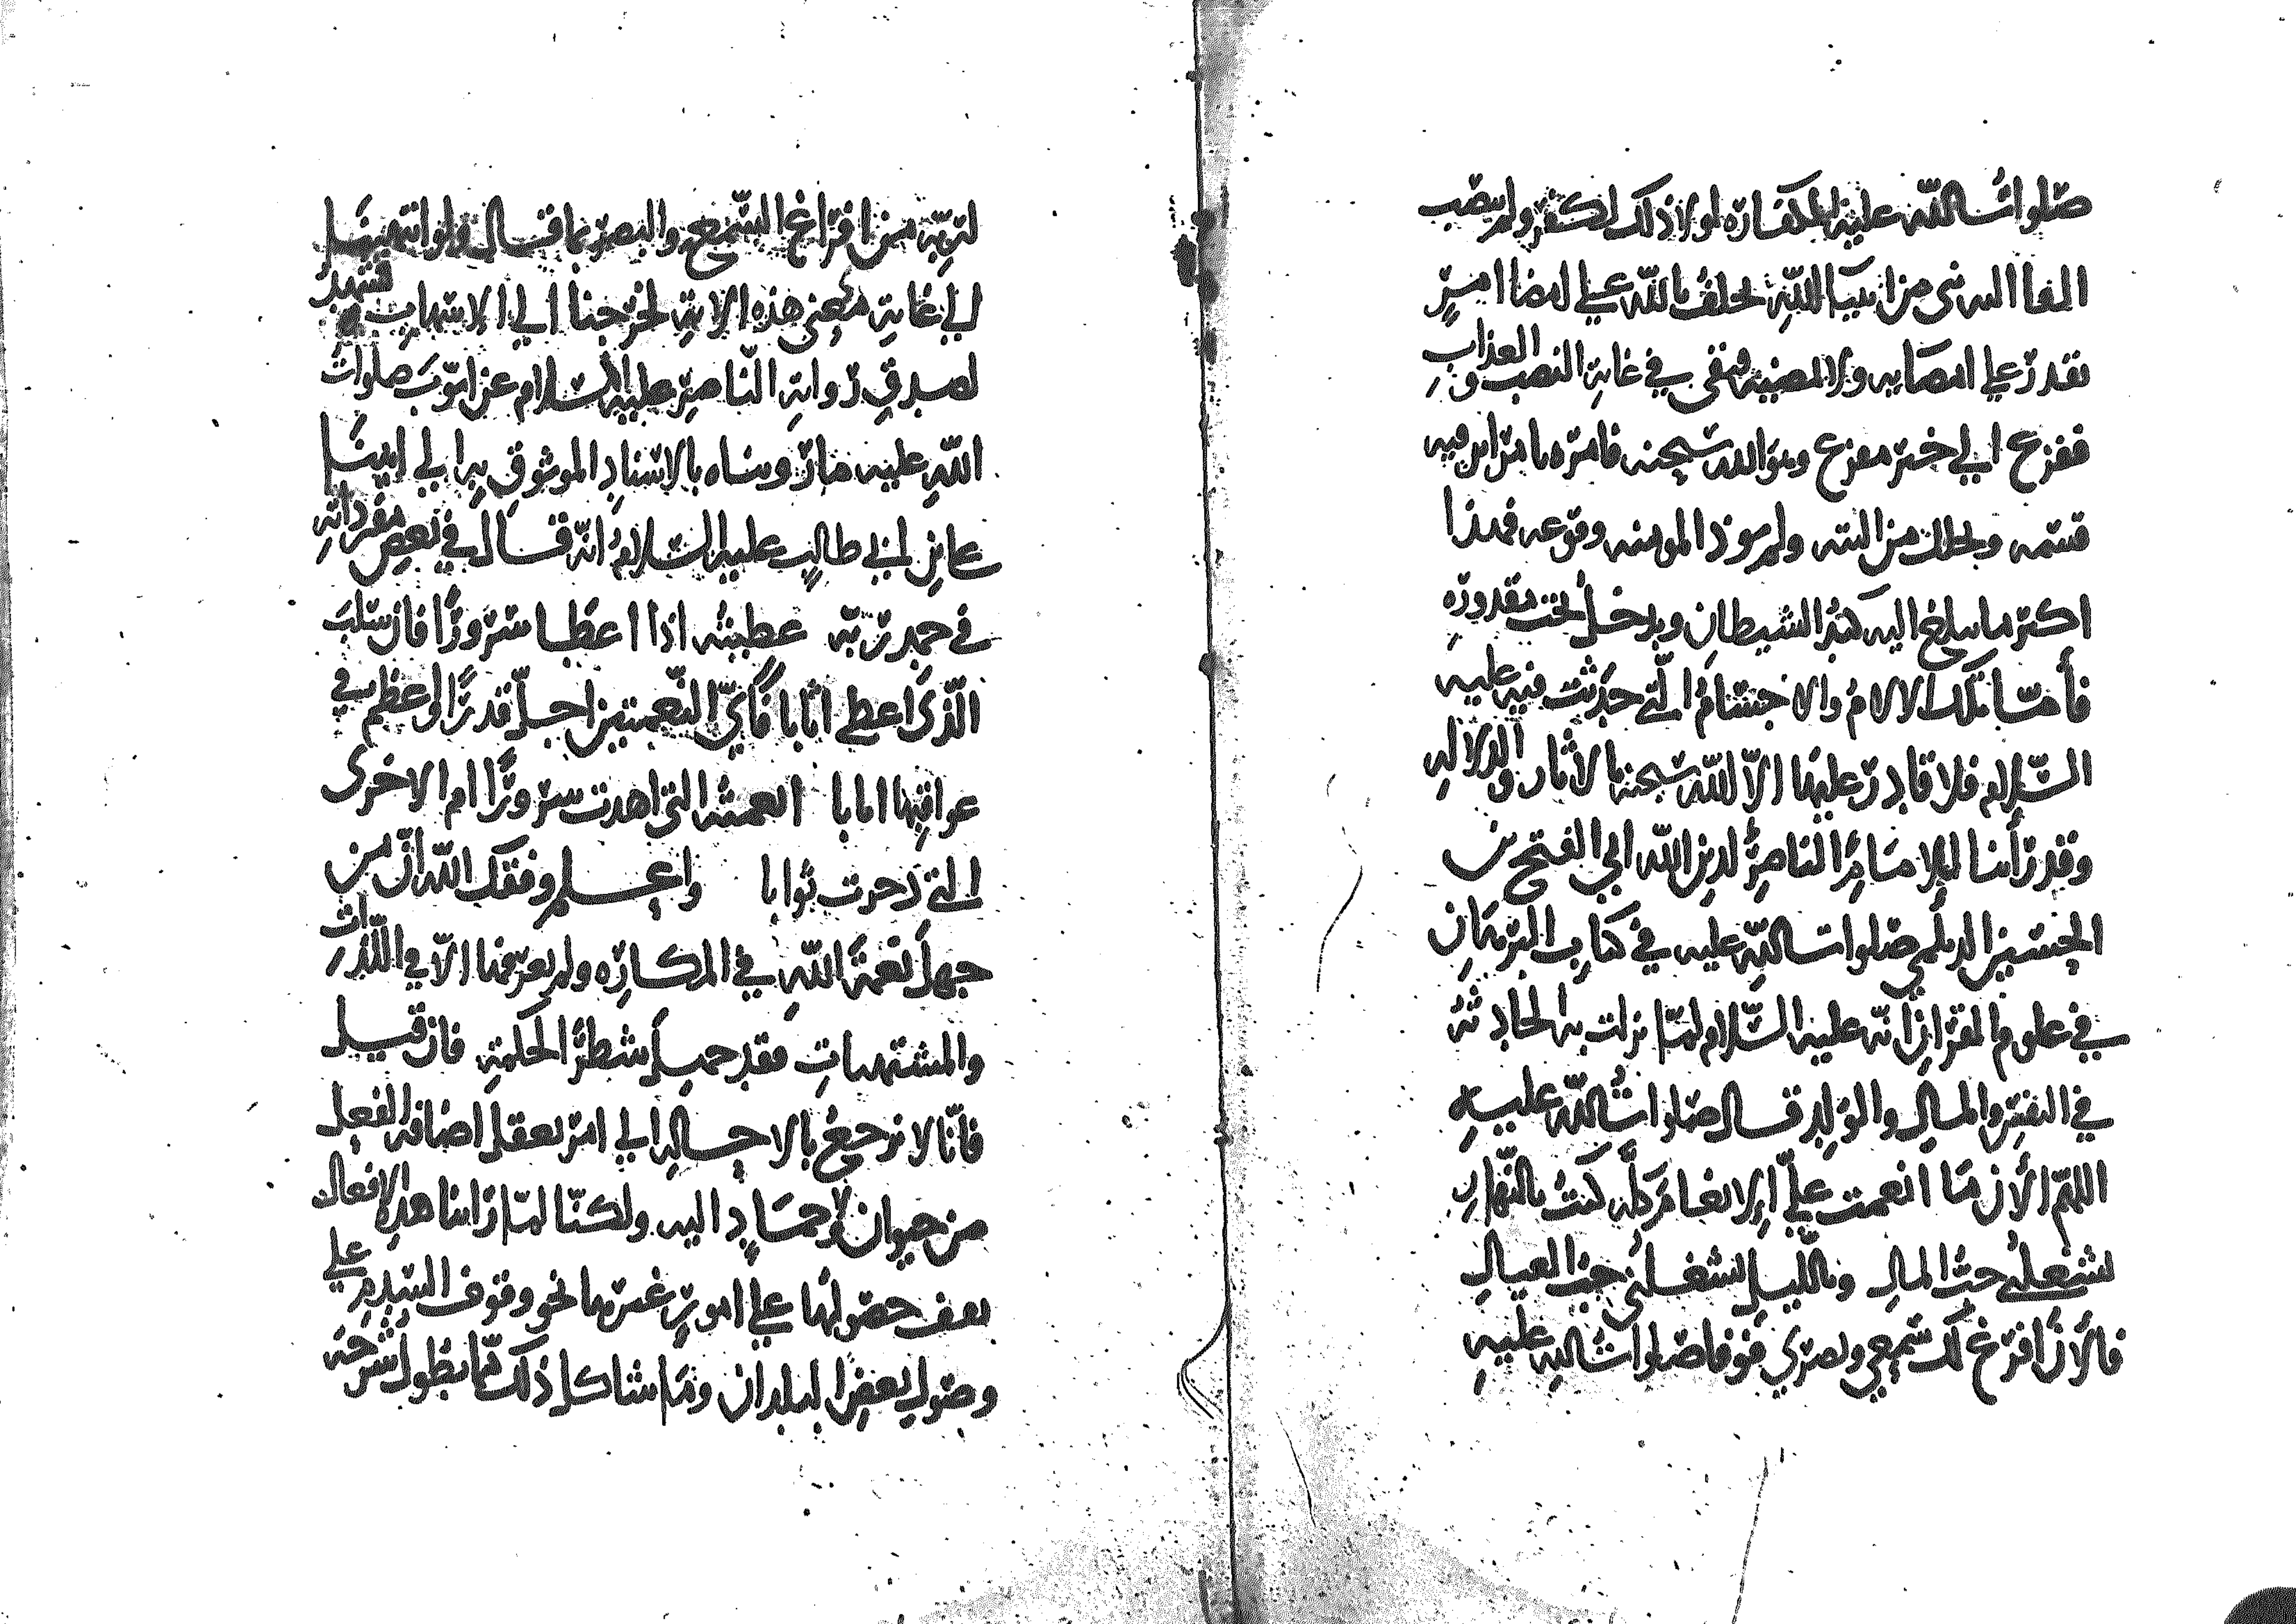 صلوات الله عليه الكفاره لولا ذلك لكفر ولم يصب
الله نبي من انبيا الله يحلف بالله على امضا امر
يقدر على امضايه ولا يمضيه فبقى في غاية النصب والعذاب
ففزع الى خير مفزع وهو الله سبحنه فامره بما يبر فيه
قسمه ولم يوذ المومنه وقوعه فهذا
اكثر ما يبلغ اليه همز الشيطان ويدخل تحت مقدوره
فأمّا تلك الالام والاجسام الّتي حدثت فيه عليه
السّلام فلا قادر عليها الّا الله سبحنه بالاثار والدلاله
وقد رأينا للامام الناصر لدين الله ابي الفتح بن
الحسين الديلمي صلوات الله عليه في كتاب البرهان
في علوم القران انّه عليه السّلام لمّا نزلت به الحادثة
في النفس والمال والولد قال صلوات الله عليه
اللهمّ الان ما انعمت عليّ الانعام كلّه كنت بالنّهار
يشغلني حبّ المال وبالليل يشغلني حبّ العيال
فالان افرغ لك سمعي وبصري فوفا صلوات الله عليه
لربّه من افراغ السّمع والبصر بما قال ولو انتهينا
الى غاية معنى هذه الاية لخرجنا الى الاسهاب فشهد
لصدق رواية النّاصر عليه السلام عن ايّوب صلوات
الله عليه ما رويناه بالاسناد الموثوق به الى ابينا
علي بن ابي طالب عليه السّلام انّه قال في بعض مفرداته
في حمد ربّه عطيته اذا اعطا سرورًا فان سلب
الّذي اعطى اثابا فأيّ النّعمتين اجلّ قدرًا واعظم في
عواقبها ايابا انعمته التي اهدت سرورًا ام الاخرى
الّتي ذخرت ثوابا واعلم وفقك الله انّ من
جهل نعمة الله في المكاره ولم يعرفها الّا في اللّذات
والمشتهيات فقد جهل شطر الحكمة فان قيل
فانّا لا نرجع بالاحاله الى امر يعقل اضافة الفعل
من حيوان او جماد اليه ولكنّا لمّا راينا هذه الافعال
يقف حصولها على امور غيرها نحو وقوف السّدم على
وصول بعض البلدان وما شاكل ذلك ممّا يطول شرحه